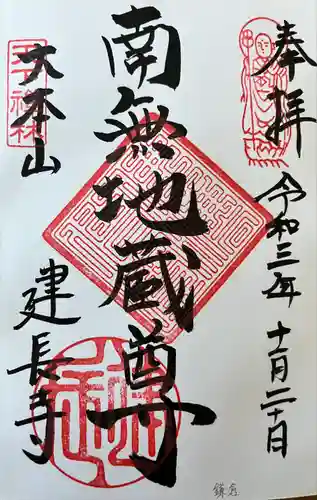 奉拝
令和三年 十一月二十日
南無地蔵尊
大本山
建長寺
鎌倉